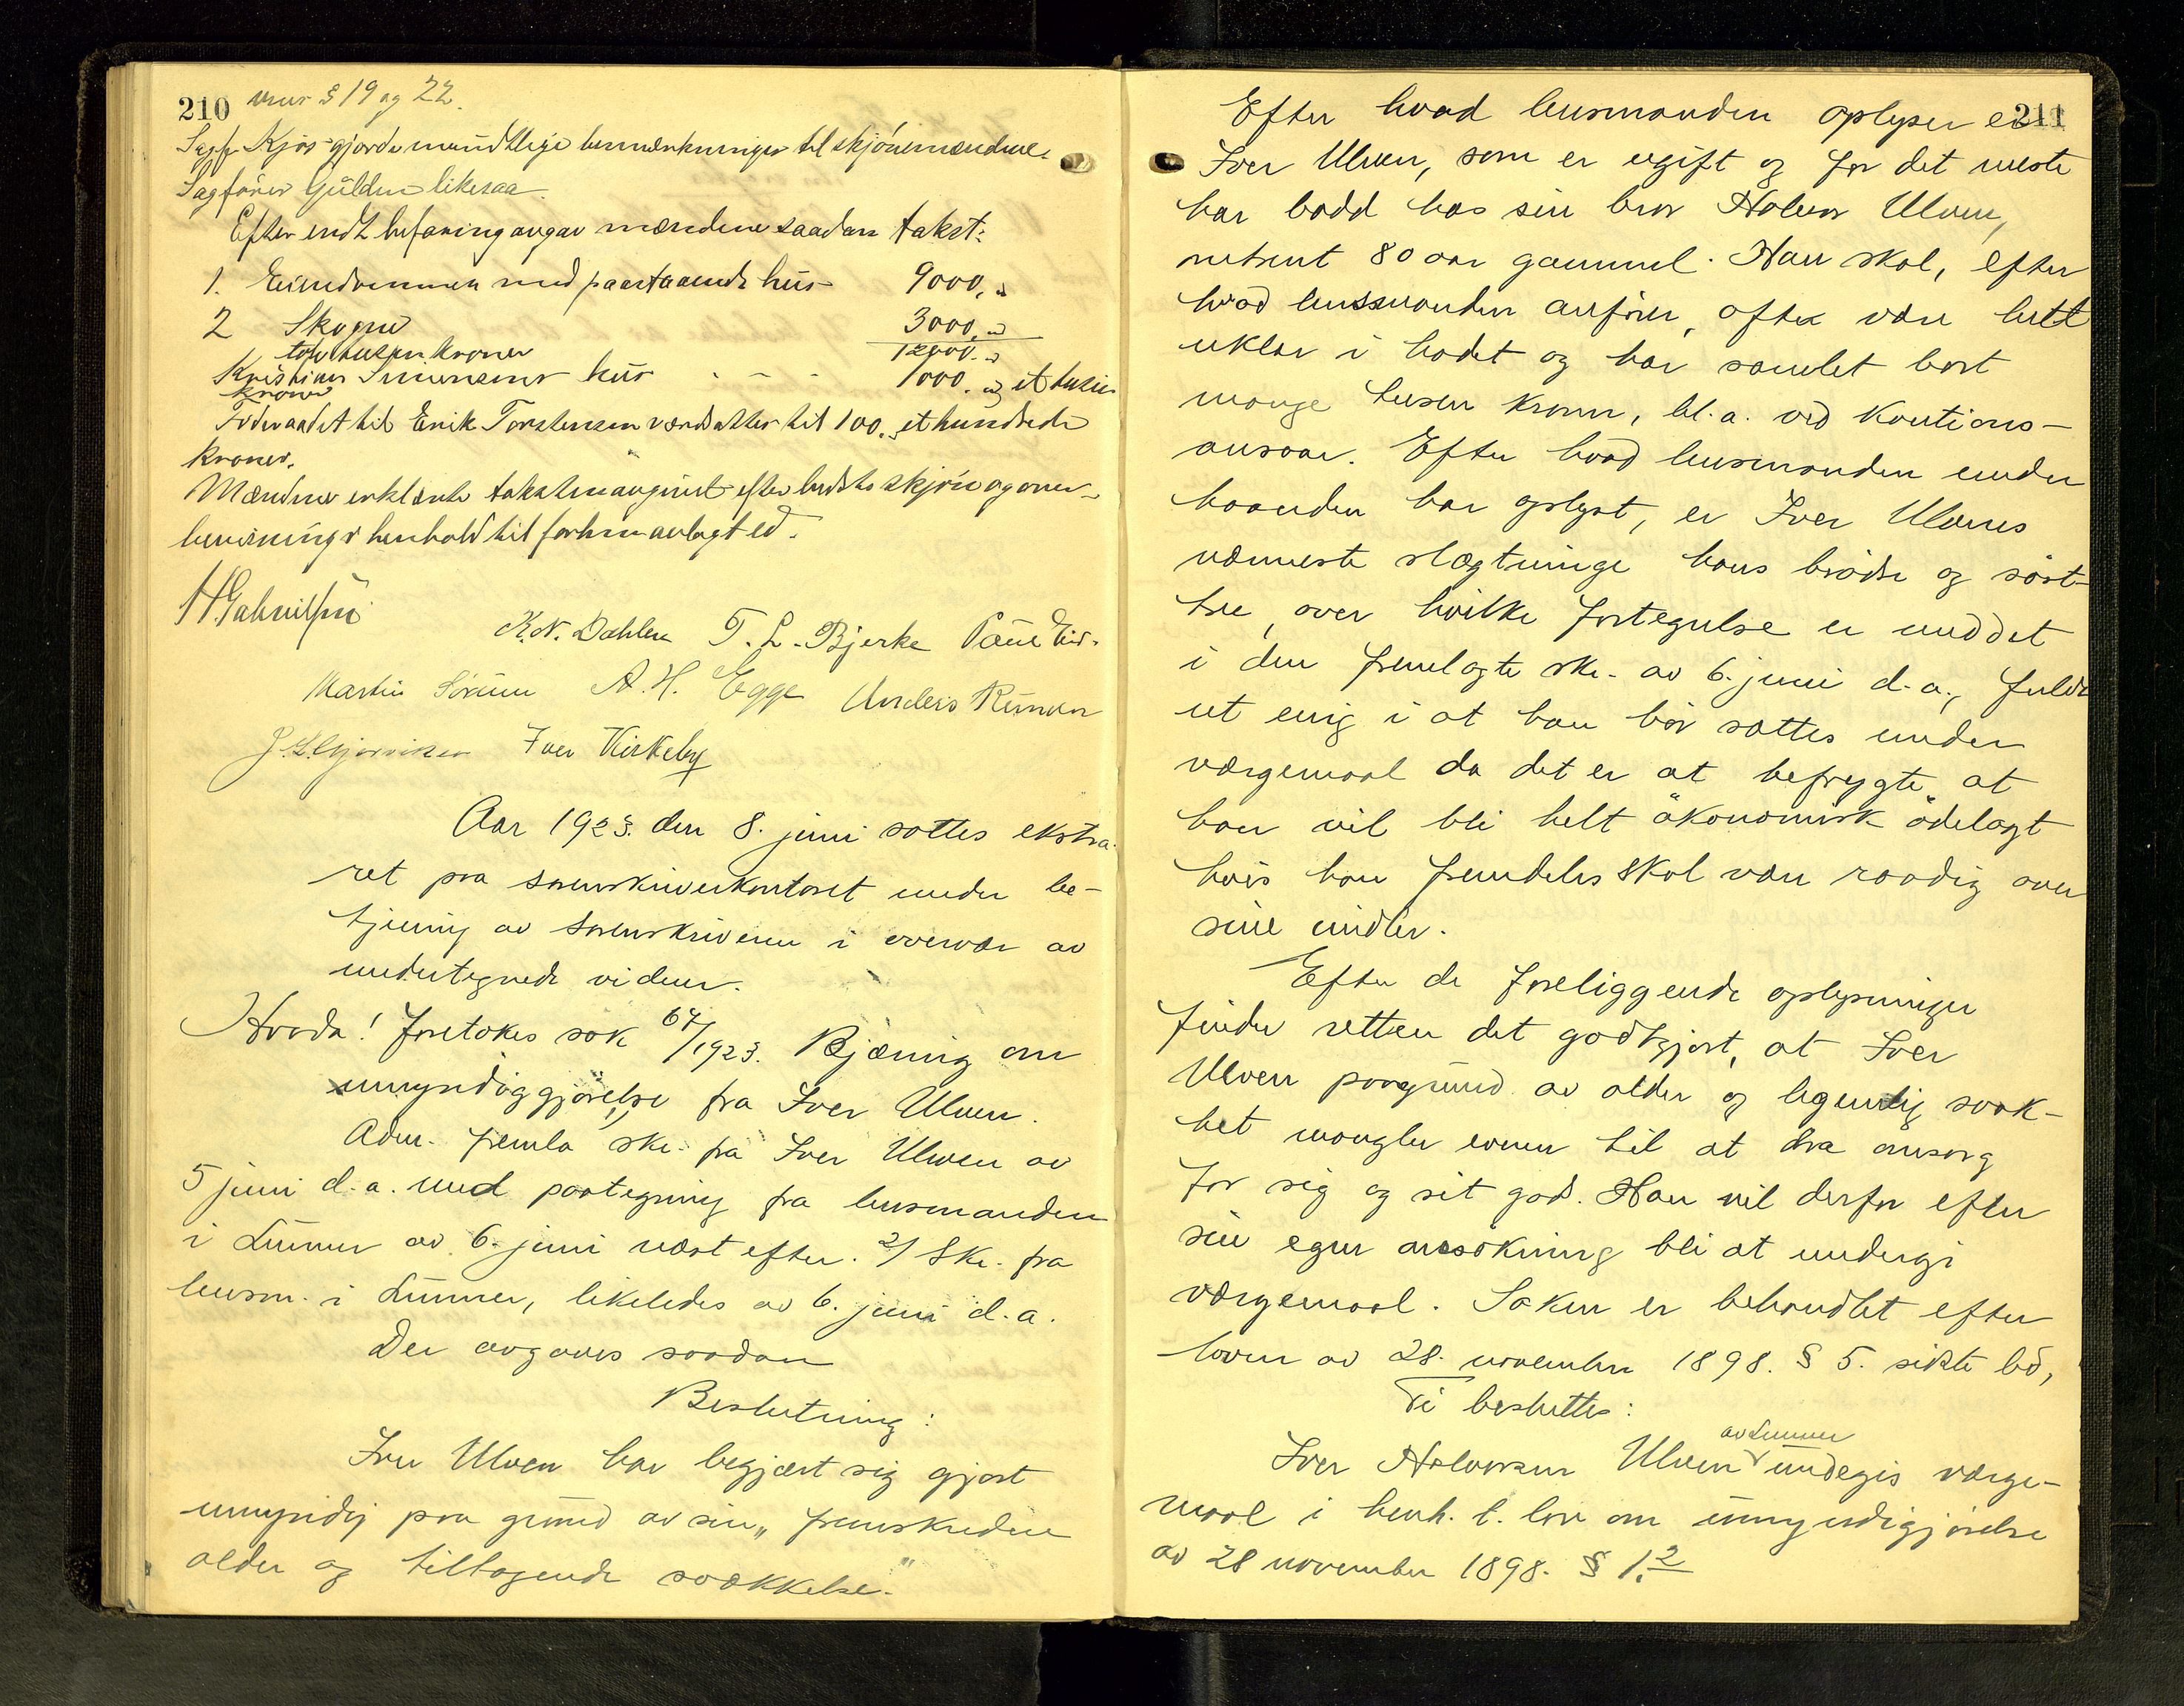 210 § 19 og 22.
Sagf. Kjös gjorde mundtlige bemærkninger til skjönsmændene.
Sagfører Gulden likesaa.
Efter endt befaring avgav mændene saadan takst:
1. Eiendommen med paastaaende hus 9000.
2 Skogen 3000.
tolv tusen kroner 12000.
Kristian Simensens hus - - - 1000. et tusen
kroner
Föderaadet til Erik Torstensen værdsættes til 100. et hundrede
kroner.
Mændene erklærte taksten avgivet efter bedste skjön og over-
bevisning i henhold til forhen avlagt ed.
H Gabrielsen
K. N. Dahlen T. L. Bjerke Paul
Martin Sørum A. H. Egge Anders
Iver Kirkeby
Aar 1923. den 8. juni sattes ekstra-
ret paa sorenskriverkontoret under be-
tjening av sorenskriveren i overvær av
undertegnede vidner.
Hvorda! Foretokes sak 64/1923. Bejæring om
umyndiggjörelse fra Iver Ulven.
Adm. fremla skr. fra Iver Ulven av
5 juni d.a. med paategning fra lensmanden
i Lunner av 6. juni næst efter. 2/ Skr. fra
lensm. i Lunner, likeledes av 6. juni d.a.
Der avgaves saadan
Beslutning:
Iver Ulven har begjært sig gjort
umyndig paa grund av sin „fremskredne
alder og tiltagende svækkelse."
211
Efter hvad lensmanden oplyser er
Iver Ulven, som er ugift og for det meste
har bodd hos sin bror Halvor Ulven,
omtrent 80 aar gammel. Han skal, efter
hvad lensmanden anfører, ofte være litt
uklar i hodet og har somlet bort
mange tusen kroner, bl.a. ved kautions-
ansvar. Efter hvad lensmanden under
haanden har oplyst, er Iver Ulvens
nærmeste slægtninge hans brødre og søst-
tre, over hvilke fortegnelse er meddelt
i den fremlagte skr. av 6. juni d.a., fuldt
ut enig i at han bör sættes under
værgemaal da det er at befrygte at
han vil bli helt økonomisk ödelagt
hvis han fremdeles skal være raadig over
sine midler.
Efter de foreliggende oplysninger
finder retten det godtgjort, at Iver
Ulven paagrund av alder og legemlig svak-
het mangler evnen til at dra omsorg
for sig og sit gods. Han vil derfor efter
sin egen ansökning bli at undergi
værgemaal. Saken er behandlet efter
loven av 28. november 1898. § 5. sidste led,
Ti besluttes:
Iver Halvorsen Ulven av Lunner undegis værge-
maal i henh. t. lov om umyndigjörelse
av 28 november 1898. § 1.2